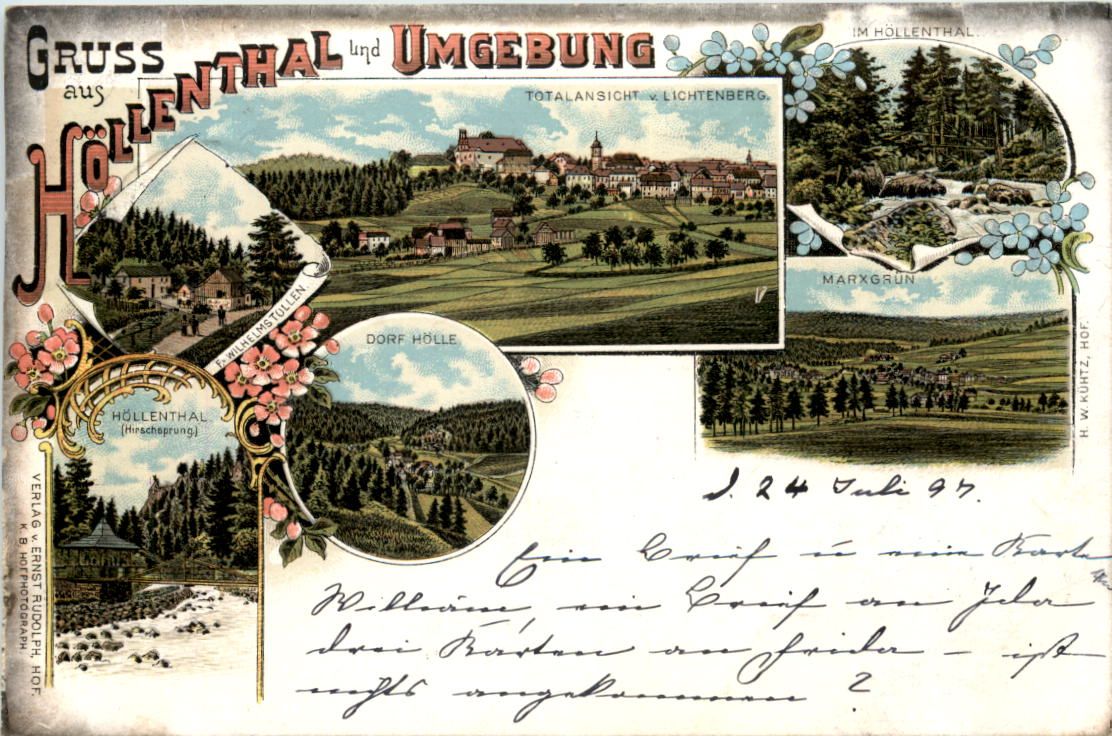 GRUSS
aus
HÖLLENTHAL und UMGEBUNG
TOTALANSICHT v. LICHTENBERG.
IM HÖLLENTHAL.
F. WILHELMSTOLLEN.
MARXGRÜN
DORF HÖLLE
HÖLLENTHAL
(Hirschsprung.)
VERLAG v. ERNST RUDOLPH, HOF.
K. B. HOFPHOTOGRAPH
H. W. KÜHTZ, HOF.
d. 24 Juli 97.
Ein Brief u eine Karte
ein Brief an Ida
drei Karten an Frida – ist
nichts angekommen?